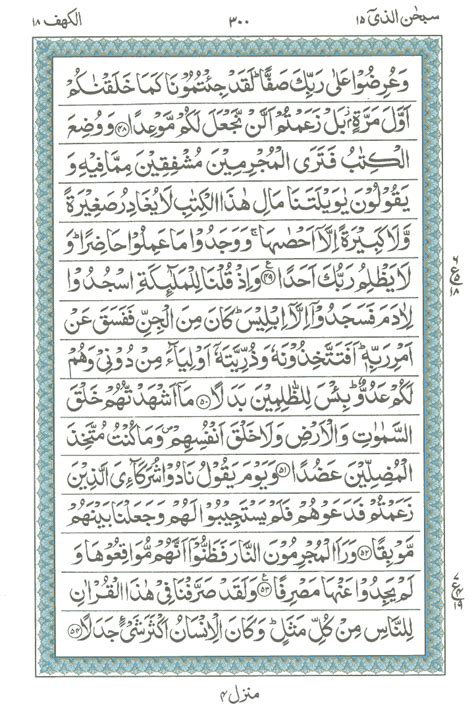 سبحٰن الذیٓ ۱۵ ۳۰۰ الكهف ۱۸
وَعُرِضُوْا عَلٰى رَبِّكَ صَفًّا ؕ لَقَدْ جِئْتُمُوْنَا كَمَا خَلَقْنٰكُمْ
اَوَّلَ مَرَّةٍۭ ؗ بَلْ زَعَمْتُمْ اَلَّنْ نَّجْعَلَ لَكُمْ مَّوْعِدًا ﴿۴۸﴾ وَوُضِعَ
الْكِتٰبُ فَتَرَى الْمُجْرِمِيْنَ مُشْفِقِيْنَ مِمَّا فِيْهِ وَ
يَقُوْلُوْنَ يٰوَيْلَتَنَا مَالِ هٰذَا الْكِتٰبِ لَا يُغَادِرُ صَغِيْرَةً
وَّلَا كَبِيْرَةً اِلَّاۤ اَحْصٰىهَا ۚ وَوَجَدُوْا مَا عَمِلُوْا حَاضِرًا ؕ وَ
لَا يَظْلِمُ رَبُّكَ اَحَدًا ﴿۴۹﴾ وَاِذْ قُلْنَا لِلْمَلٰٓئِكَةِ اسْجُدُوْا
لِاٰدَمَ فَسَجَدُوْۤا اِلَّاۤ اِبْلِيْسَ ؕ كَانَ مِنَ الْجِنِّ فَفَسَقَ عَنْ
اَمْرِ رَبِّهٖ ؕ اَفَتَتَّخِذُوْنَهٗ وَذُرِّيَّتَهٗۤ اَوْلِيَآءَ مِنْ دُوْنِيْ وَهُمْ
لَكُمْ عَدُوٌّ ؕ بِئْسَ لِلظّٰلِمِيْنَ بَدَلًا ﴿۵۰﴾ مَاۤ اَشْهَدْتُّهُمْ خَلْقَ
السَّمٰوٰتِ وَالْاَرْضِ وَلَا خَلْقَ اَنْفُسِهِمْ ۪ وَمَا كُنْتُ مُتَّخِذَ
الْمُضِلِّيْنَ عَضُدًا ﴿۵۱﴾ وَيَوْمَ يَقُوْلُ نَادُوْا شُرَكَآءِيَ الَّذِيْنَ
زَعَمْتُمْ فَدَعَوْهُمْ فَلَمْ يَسْتَجِيْبُوْا لَهُمْ وَجَعَلْنَا بَيْنَهُمْ
مَّوْبِقًا ﴿۵۲﴾ وَرَاَ الْمُجْرِمُوْنَ النَّارَ فَظَنُّوْۤا اَنَّهُمْ مُّوَاقِعُوْهَا وَ
لَمْ يَجِدُوْا عَنْهَا مَصْرِفًا ﴿۵۳﴾ وَلَقَدْ صَرَّفْنَا فِيْ هٰذَا الْقُرْاٰنِ
لِلنَّاسِ مِنْ كُلِّ مَثَلٍ ؕ وَكَانَ الْاِنْسَانُ اَكْثَرَ شَيْءٍ جَدَلًا ﴿۵۴﴾
۶ ع ۵ ۱۸
۷ ع ۴ ۱۹
منزل ۴